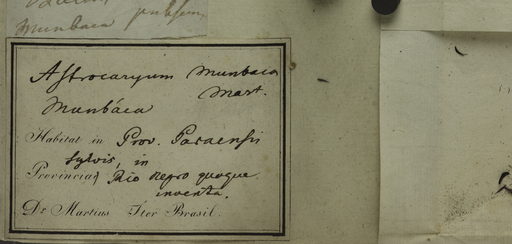 Munbaca pubsem
Astrocaryum Munbaca
Mart.
Munbáca
Habitat in Prov. Paraensis
sylvis, in
Provincia Rio Negro quoque
inventa.
Dr Martius Iter Brasil.